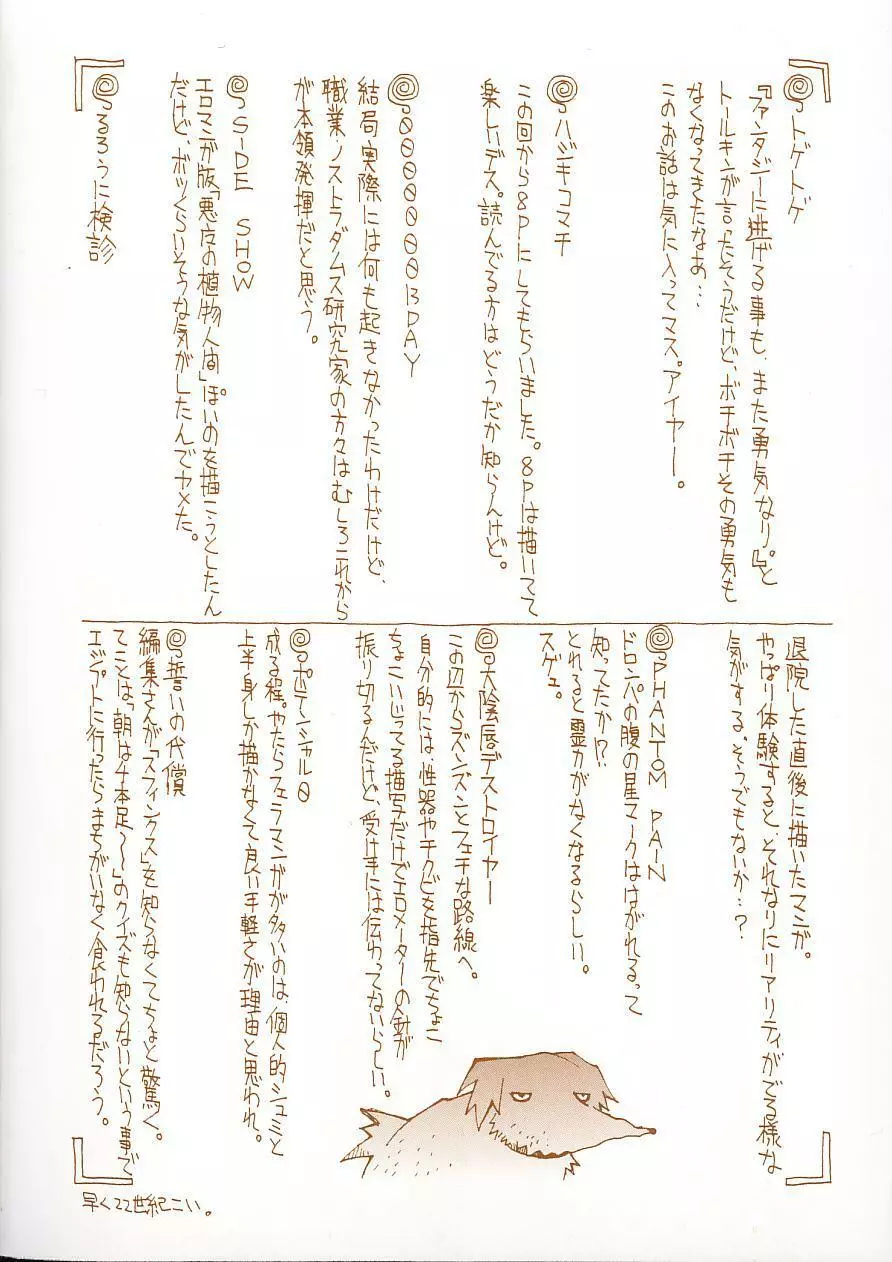 トゲトゲ
『ファンタジーに逃げる事も、また勇気なり。』と
トールキンが言ったそうだけど、ボチボチその勇気も
なくなってきたなあ…
このお話は気に入ってマス。アイヤー。
ハジキコマチ
この回から8Pにしてもらいました。8Pは描いてて
楽しいデス。読んでる方はどうだか知らんけど。
0000000B DAY
結局、実際には何も起きなかったわけだけど、
職業・ノストラダムス研究家の方々はむしろこれから
が本領発揮だと思う。
SIDE SHOW
エロマンガ版「悪夜の植物人間」ぽいのを描こうとしたん
だけど、ボツくらいそうな気がしたんでヤメた。
るろうに検診
退院した直後に描いたマンガ。
やっぱり体験すると、それなりにリアリティがでる様な
気がする。そうでもないか…？
PHANTOM PAIN
ドロンパの腹の星マークははがれるって
知ってたか!?
とれると霊力がなくなるらしい。
スゲェ。
大陰唇デストロイヤー
この辺からズンズンとフェチな路線へ。
自分的には、性器やチクビを指先でちょこ
ちょこいじってる描写だけでエロメーターの針が
振り切るんだけど、受け手には伝わってないらしい。
ポテンシャル0
成る程。やたらフェラマンガが多いのは、個人的シュミと
上半身しか描かなくて良い手軽さが理由と思われ。
誓いの代償
編集さんが「スフィンクス」を知らなくてちょと驚く。
てことは「朝は4本足〜〜」のクイズも知らないという事で
エジプトに行ったらまちがいなく食われるだろう。
早く22世紀こい。